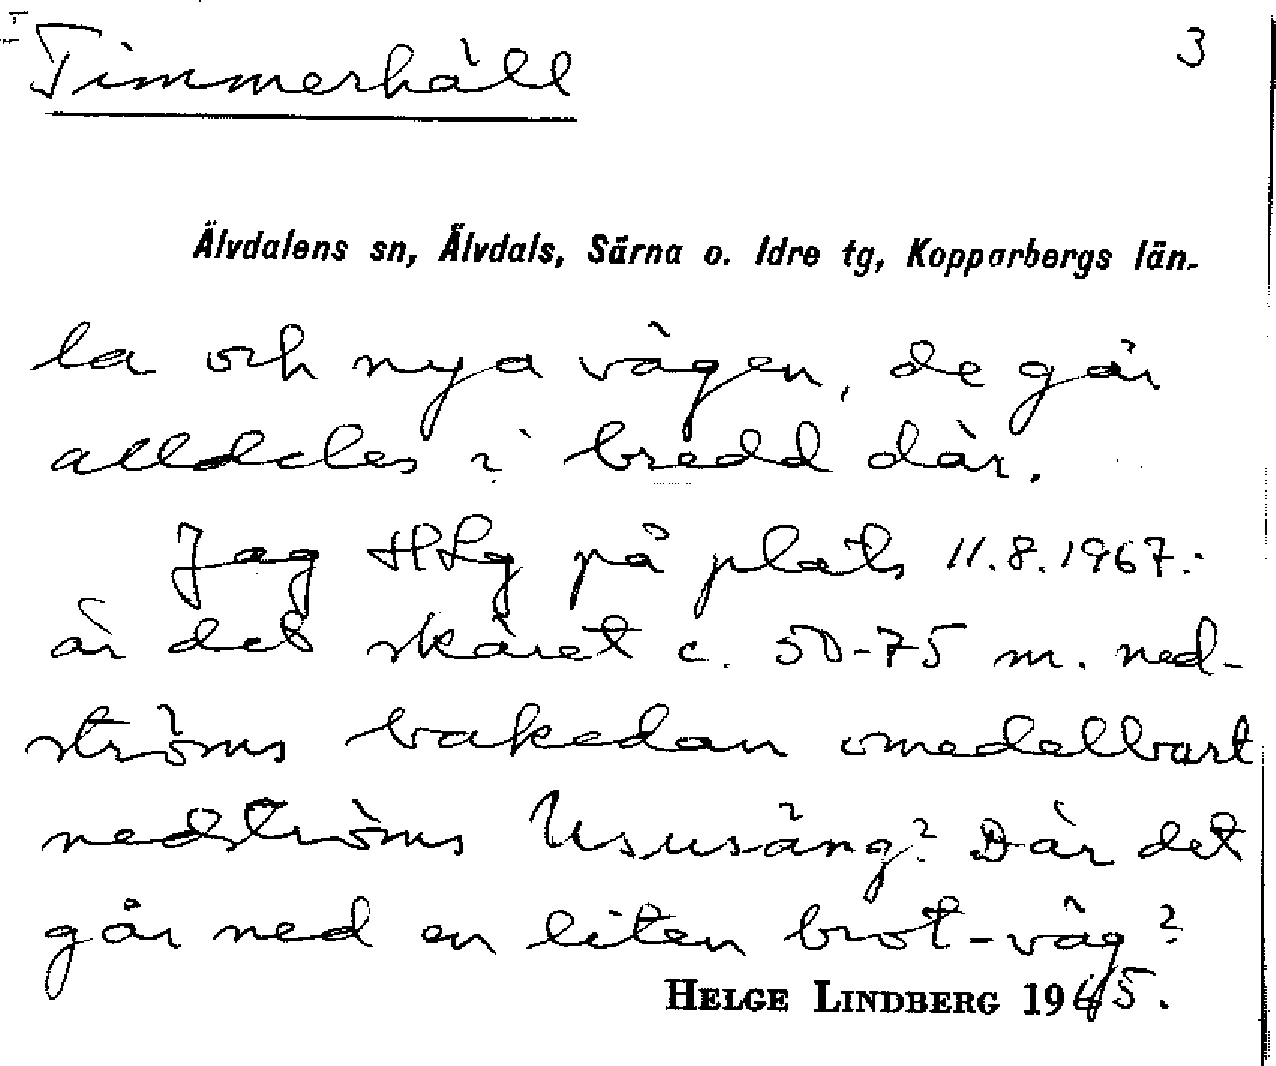 Timmerhäll 3
Älvdalens sn, Älvdals, Särna o. Idre tg, Kopparbergs län.
la och nya vägen, de går
alldeles i bredd där.
Jag HLg på plats 11.8.1967.
är det skäret c. 50-75 m. ned-
ströms bakedan omedelbart
nedströms Ususäng? Där det
går ned en liten brot-väg?
HELGE LINDBERG 1965.